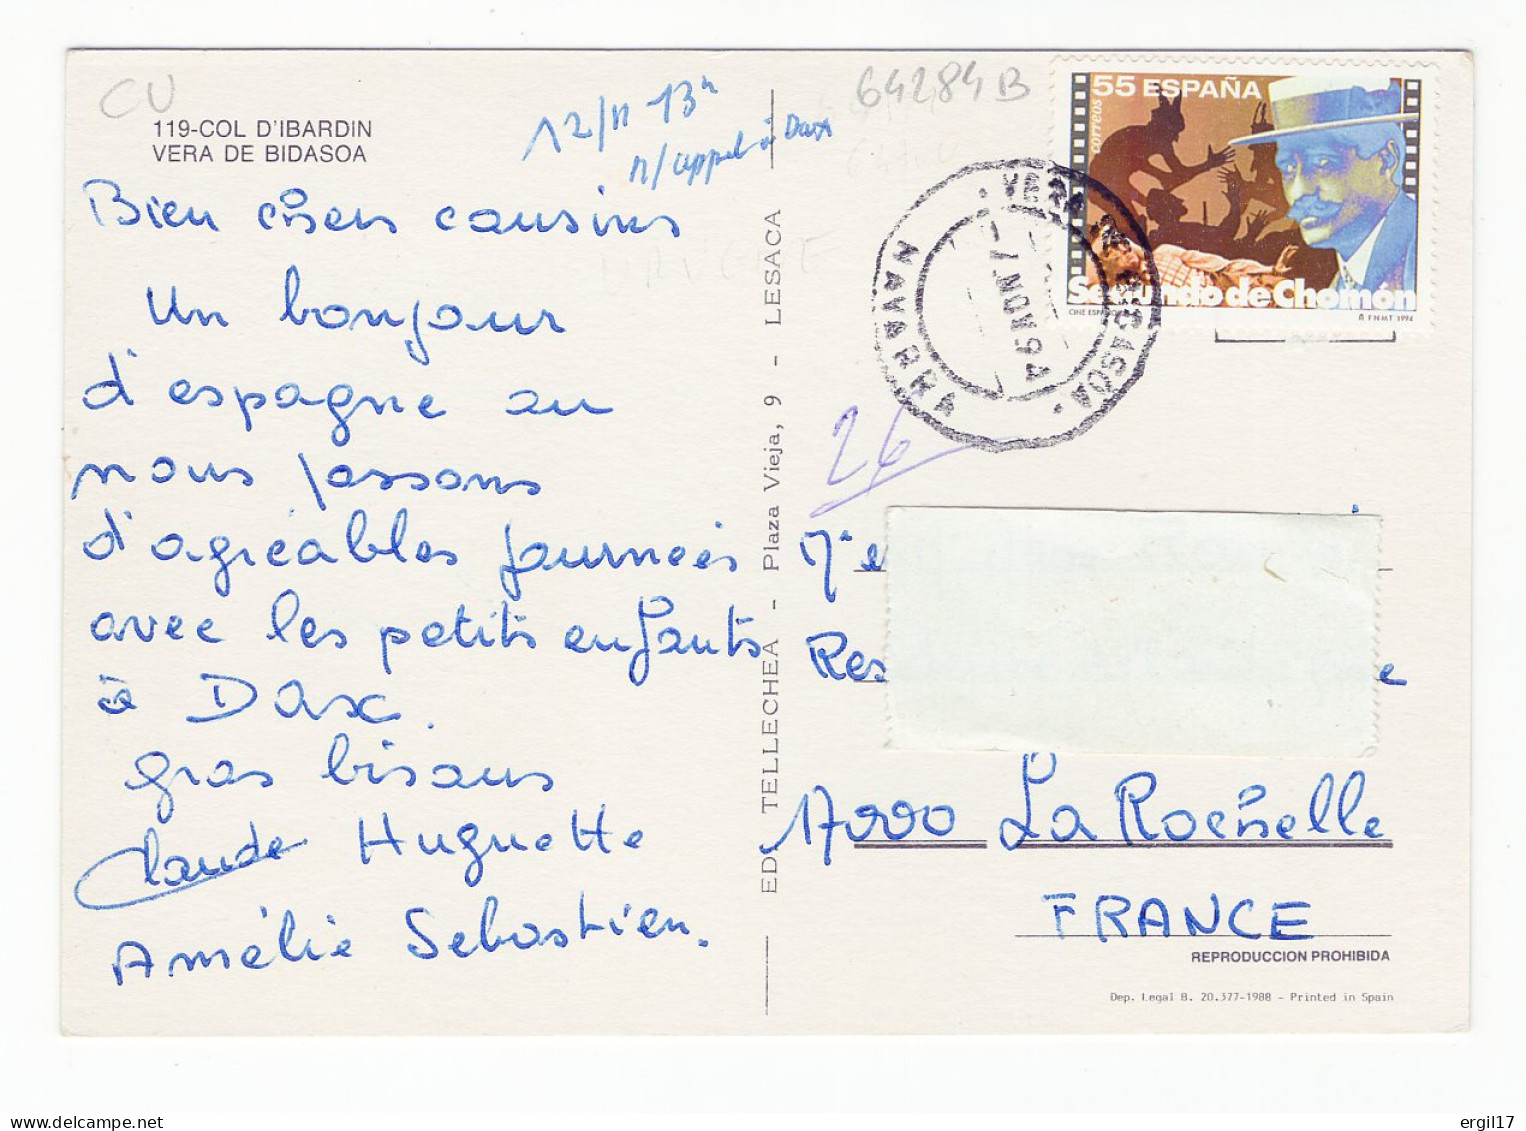 CU
119-COL D'IBARDIN
VERA DE BIDASOA
12/11 13h
n/appel à Dax
Bien chers cousins
Un bonjour
d'espagne ou
nous passons
d'agréables journées
avec les petits enfants
à Dax.
gros bisous
Claude Huguette
Amélie Sebastien.
ED TELLECHEA - Plaza Vieja, 9 - LESACA
64284B
55 ESPAÑA
correos
Segundo de Chomón
CINE ESPAÑOL
FNMT 1994
VERA DE BIDASOA
NAVARRA
7 NOV 94
26
17000 La Rochelle
FRANCE
REPRODUCCION PROHIBIDA
Dep. Legal B. 20.377-1988 - Printed in Spain
ergil17